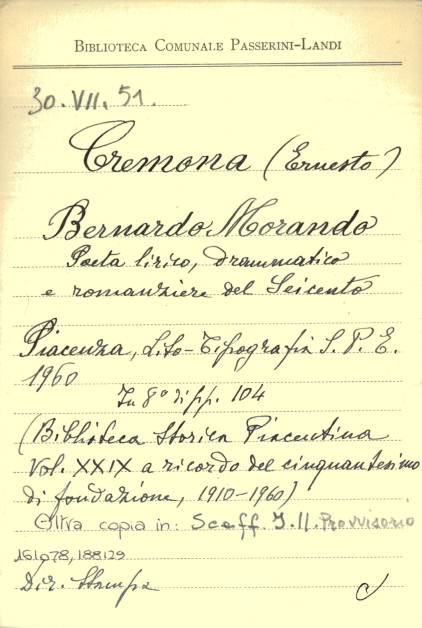 BIBLIOTECA COMUNALE PASSERINI-LANDI
30.VII.51.
Cremona (Ernesto)
Bernardo Morando
Poeta lirico, drammatico
e romanziere del Seicento
Piacenza, Lito-Tipografia S. P. E.
1960
In 8° di pp. 104
(Biblioteca Storica Piacentina
Vol. XXIX a ricordo del cinquantesimo
di fondazione, 1910-1960)
Altra copia in: Scaff. I.11. Provvisorio
161078, 188129
Dir. Stampa